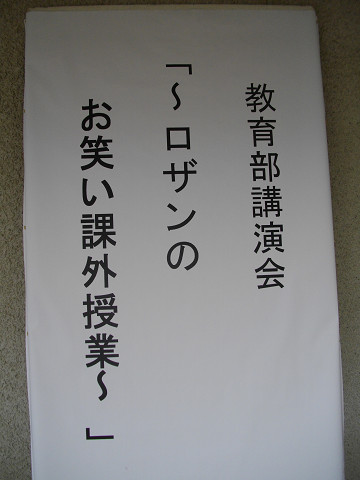 教育部講演会
「～ロザンの
お笑い課外授業～」